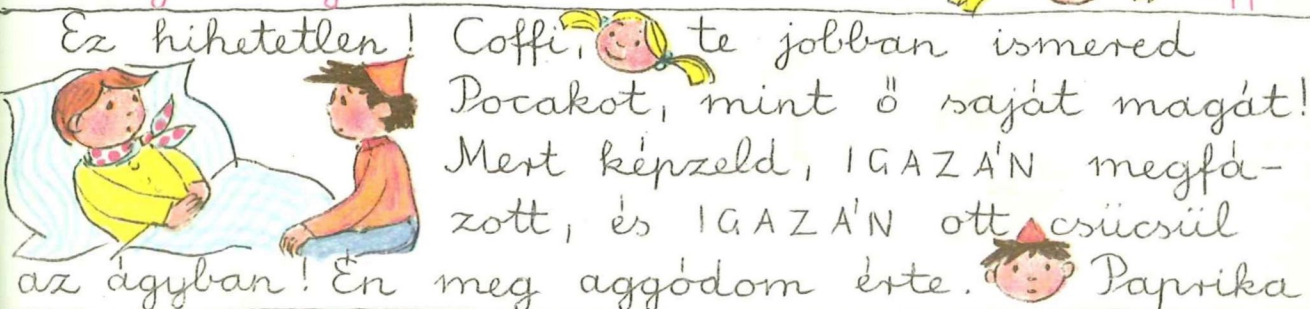 Ez hihetetlen! Coffi, te jobban ismered
Pocakot, mint ő saját magát!
Mert képzeld, IGAZÁN megfá-
zott, és IGAZÁN ott csücsül
az ágyban! Én meg aggódom érte. Paprika